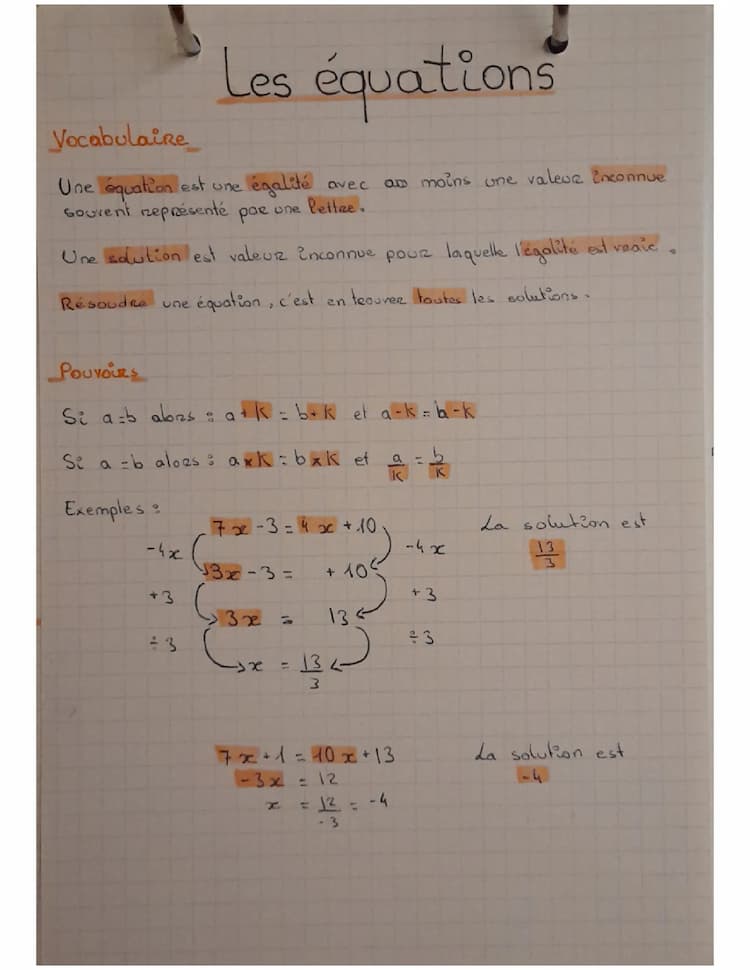 Les équations
Vocabulaire
Une équation est une égalité avec au moins une valeur inconnue
souvent représenté par une lettre.
Une solution est valeur inconnue pour laquelle l'égalité est vraie.
Résoudre une équation, c'est en trouver toutes les solutions.
Pouvoirs
Si a=b alors : a+k = b+k et a-k = b-k
Si a=b alors : a×k = b×k et a/k = b/k
Exemples :
7x -3 = 4x +10
La solution est
13/3
-4x
-4x
3x -3 = +10
+3
+3
3x = 13
÷3
÷3
x = 13/3
7x +1 = 10x +13
La solution est
-4
-3x = 12
x = 12/-3 = -4